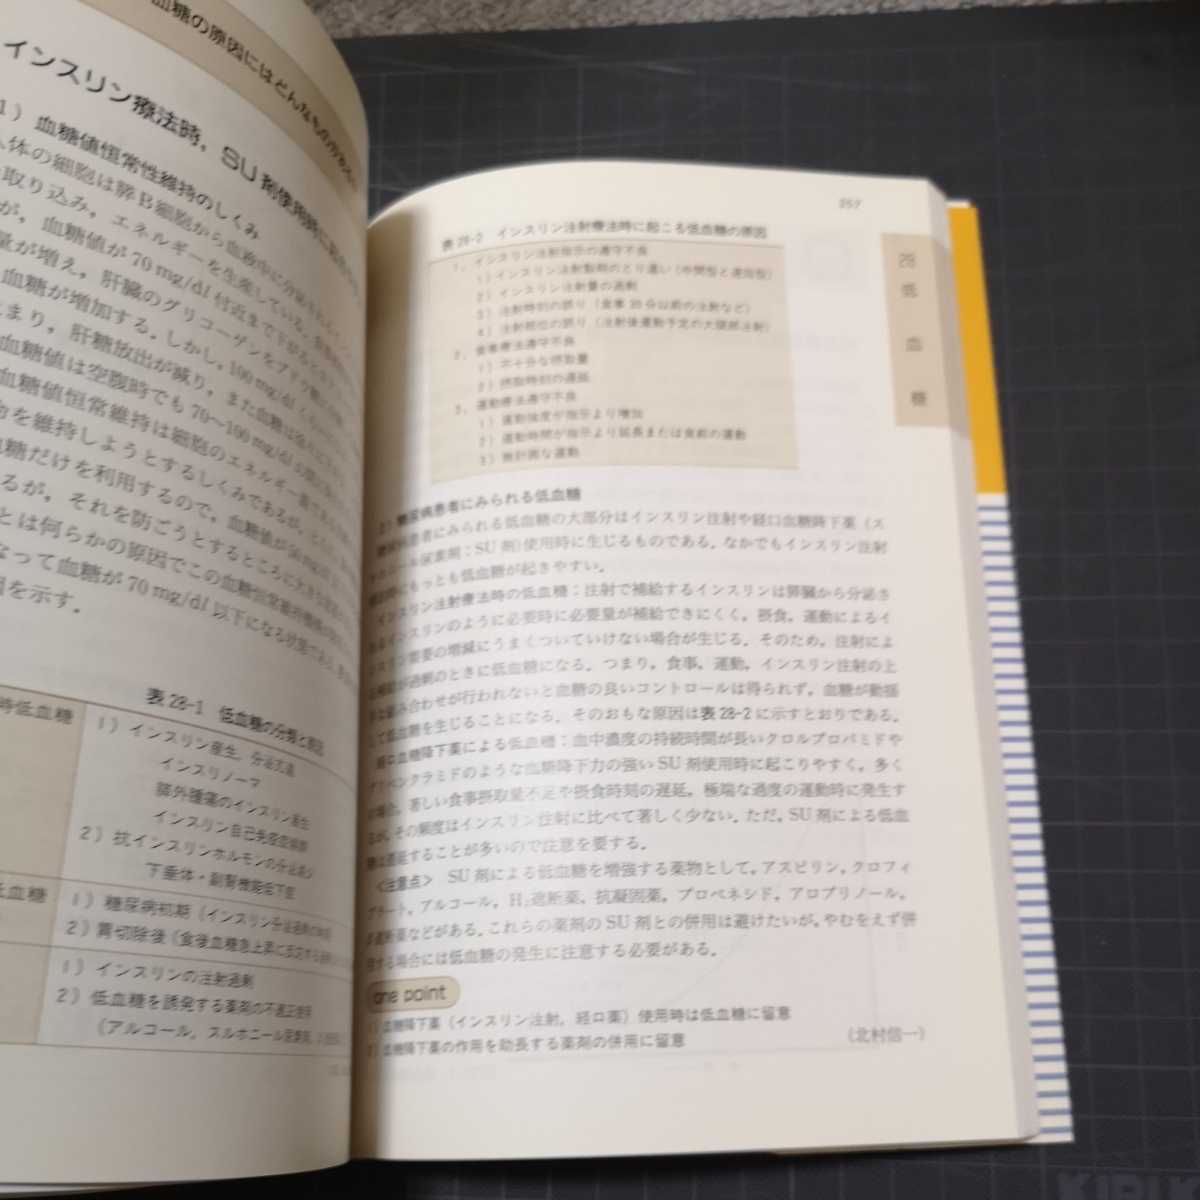 血糖の原因にはどんなものがあるか
インスリン療法時，SU剤使用時に
1）血糖値恒常性維持のしくみ
体の細胞は膵B細胞から血液中に分泌される
取り込み，エネルギーを生産している．
が，血糖値が70 mg/dl 付近まで下がると
量が増え，肝臓のグリコーゲンをブドウ糖に
血糖が増加する．しかし，100 mg/dl
まり，肝糖放出が減り，また血糖は
血糖値は空腹時でも70〜100 mg/dl の間に
血糖値恒常維持は細胞のエネルギー源である
を維持しようとするしくみであるが，
糖だけを利用するので，血糖値が50 mg/dl
るが，それを防ごうとするところに大きな
とは何らかの原因でこの血糖恒常維持
なって血糖が70 mg/dl 以下になる状態である．
を示す．
表28-1 低血糖の分類と原因
時低血糖
1）インスリン産生，分泌亢進
インスリノーマ
膵外腫瘍のインスリン産生
インスリン自己免疫症候群
2）抗インスリンホルモンの分泌減少
下垂体・副腎機能低下症
低血糖
1）糖尿病初期（インスリン分泌遅延の時期
2）胃切除後（食後血糖急上昇に反応する
1）インスリンの注射過剰
2）低血糖を誘発する薬剤の不適正使用
（アルコール，スルホニール尿素剤，
257
28
低
血
糖
表28-2 インスリン注射療法時に起こる低血糖の原因
1．インスリン注射指示の遵守不良
1）インスリン注射製剤のとり違い（中間型と速効型）
2）インスリン注射量の過剰
3）注射時刻の誤り（食事30分以前の注射など）
4）注射部位の誤り（注射後運動予定の大腿部注射）
2．食事療法遵守不良
1）不十分な摂取量
2）摂取時刻の遅延
3．運動療法遵守不良
1）運動強度が指示より増加
2）運動時間が指示より延長または食前の運動
3）無計画な運動
2）糖尿病患者にみられる低血糖
糖尿病患者にみられる低血糖の大部分はインスリン注射や経口血糖降下薬（ス
ルホニール尿素剤：SU剤）使用時に生じるものである．なかでもインスリン注射
療法時にもっとも低血糖が起きやすい．
インスリン注射療法時の低血糖：注射で補給するインスリンは膵臓から分泌さ
れるインスリンのように必要時に必要量が補給できにくく，摂食，運動によるイ
ンスリン需要の増減にうまくついていけない場合が生じる．そのため，注射によ
る補給が過剰のときに低血糖になる．つまり，食事，運動，インスリン注射の上
手な組み合わせが行われないと血糖の良いコントロールは得られず，血糖が動揺
して低血糖を生じることになる．そのおもな原因は表28-2に示すとおりである．
経口血糖降下薬による低血糖：血中濃度の持続時間が長いクロルプロパミドや
グリベンクラミドのような血糖降下力の強いSU剤使用時に起こりやすく，多く
の場合，著しい食事摂取量不足や摂食時刻の遅延，極端な過度の運動時に発生す
るが，その頻度はインスリン注射に比べて著しく少ない．ただ，SU剤による低血
糖は遷延することが多いので注意を要する．
〈注意点〉 SU剤による低血糖を増強する薬物として，アスピリン，クロフィ
ブラート，アルコール，H₂遮断薬，抗凝固薬，プロベネシド，アロプリノール，
β遮断薬などがある．これらの薬剤のSU剤との併用は避けたいが，やむをえず併
用する場合には低血糖の発生に注意する必要がある．
one point
1）血糖降下薬（インスリン注射，経口薬）使用時は低血糖に留意
2）血糖降下薬の作用を助長する薬剤の併用に留意
（北村信一）